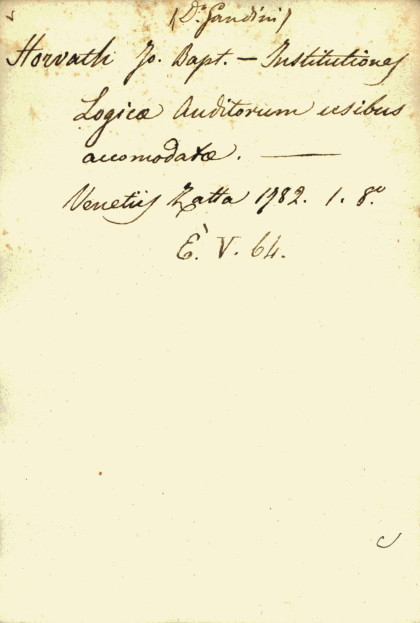 (Dr. Gandini)
Horvath Jo. Bapt. — Institutiones
Logicæ Auditorum usibus
accomodatæ. —
Venetiis Zatta 1782. 1. 8.o
È. V. 64.